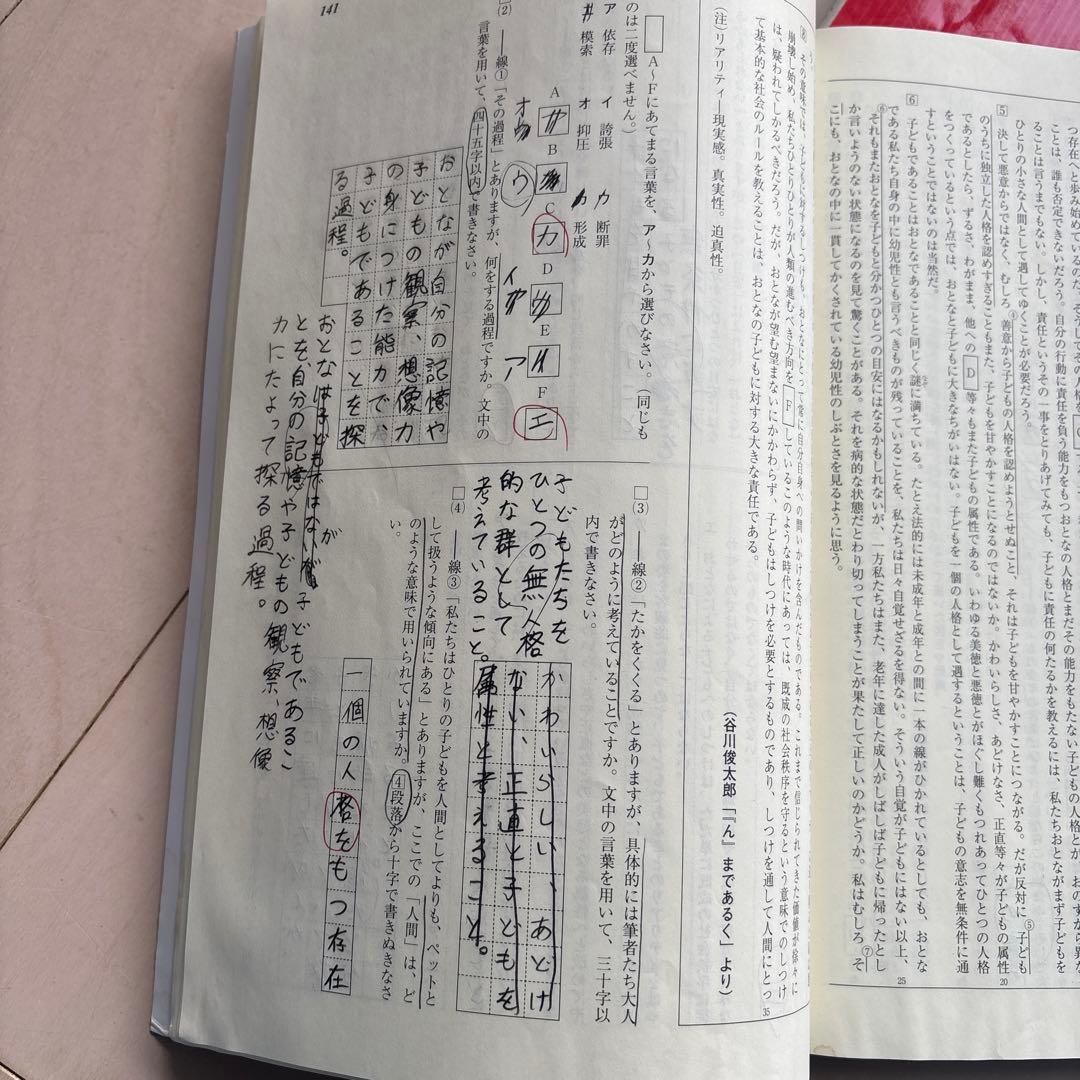 つ存在へと歩み始め
ことは、誰も否定できないだろう。自分の行動に責任を負う能力をもつおとなの人格とまだその能力をもたない子どもの人格とが、おのずから異な
ることは言うまでもない。しかし、責任というその一事をとりあげてみても、子どもに責任の何たるかを教えるには、私たちおとながまず子どもを
ひとりの小さな人間として遇してゆくことが必要だろう。
5 決して悪意からではなく、むしろ④善意から子どもの人格を認めようとせぬこと、それは子どもを甘やかすことにつながる。だが反対に⑤子ども
のうちに独立した人格を認めすぎることもまた、子どもを甘やかすことになるのではないか。かわいらしさ、あどけなさ、正直等々が子どもの属性
であるとしたら、ずるさ、わがまま、他への D 等々もまた子どもの属性である。いわゆる美徳と悪徳とがほぐし難くもつれあってひとつの人格
をつくっているという点では、おとなと子どもに大きなちがいはない。子どもを一個の人格として遇するということは、子どもの意志を無条件に通
すということではないのは当然だ。
6 子どもであることはおとなであることと同じく謎に満ちている。たとえ法的には未成年と成年との間に一本の線がひかれているとしても、おとな
である私たち自身の中に幼児性とも言うべきものが残っていることを、私たちは日々自覚せざるを得ない。そういう自覚が子どもにはない以上、
⑥それもまたおとなを子どもと分かつひとつの目安にはなるかもしれないが、一方私たちはまた、老年に達した成人がしばしば子どもに帰ったとし
か言いようのない状態になるのを見て驚くことがある。それを病的な状態だとわり切ってしまうことが果たして正しいのかどうか。私はむしろ⑦そ
こにも、おとなの中に一貫してかくされている幼児性のしぶとさを見るように思う。
20
25
その意味では、子どもに対するしつけも、おとなにとって常に自分自身への問いかけを含んだものである。これまで信じられてきた価値が徐々に
崩壊し始め、私たちひとりひとりが人類の進むべき方向を F しているこのような時代にあっては、既成の社会秩序を守るという意味でのしつけ
は、疑われてしかるべきだろう。だが、おとなが望む望まないにかかわらず、子どもはしつけを必要とするものであり、しつけを通して人間にとっ
て基本的な社会のルールを教えることは、おとなの子どもに対する大きな責任である。
35
(谷川俊太郎「「ん」まであるく」より)
(注)リアリティー=現実感。真実性。迫真性。
A~Fにあてまる言葉を、ア~カから選びなさい。(同じも
のは二度選べません。)
ア 依存 イ 誇張 カ 断罪
模索 オ 抑圧 形成
A B C D E F
カ エ
ウ
ア
□(2) ――線①「その過程」とありますが、何をする過程ですか。文中の
言葉を用いて、四十五字以内で書きなさい。
おとなが自分の記憶や
子どもの観察、想像力
の身につけた能力で、
子どもであることを探
る過程。
おとなは子どもではないが子どもであるこ
とを、自分の記憶や子どもの観察、想像
力にたよって探る過程。
が
□(3) ――線②「たかをくくる」とありますが、具体的には筆者たち大人
がどのように考えていることですか。文中の言葉を用いて、三十字以
内で書きなさい。
かわいらしい、あどけ
ない、正直と子どもを
属性と考えること。
子どもたちを
ひとつの無人格
的な群として
考えていること。
□(4) ――線③「私たちはひとりの子どもを人間としてよりも、ペットと
して扱うような傾向にある」とありますが、ここでの「人間」は、ど
のような意味で用いられていますか。4段落から十字で書きぬきなさ
い。
一個の人格をもつ存在
141